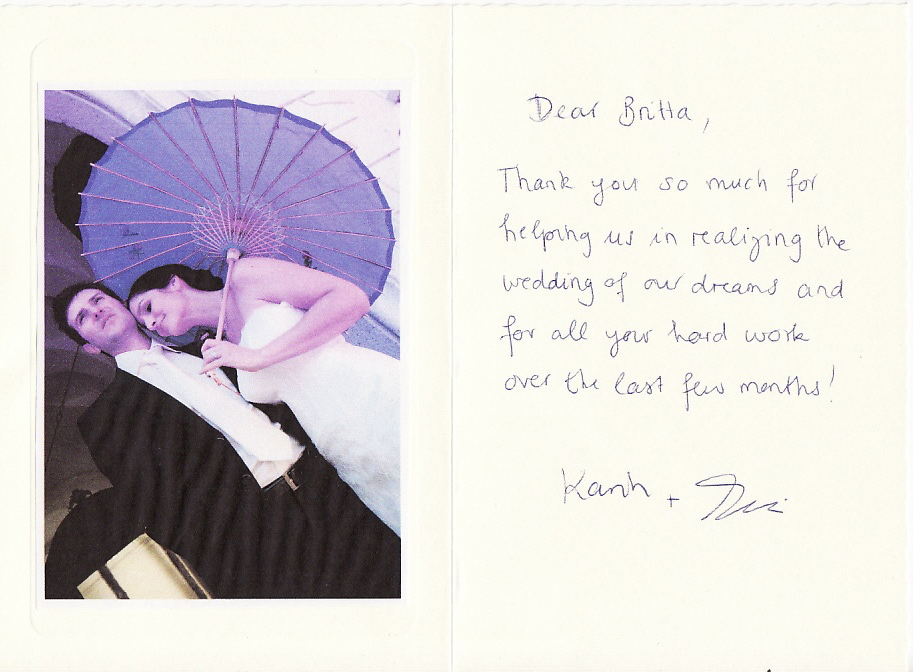 Dear Britta,
Thank you so much for
helping us in realizing the
wedding of our dreams and
for all your hard work
over the last few months!
Karin +